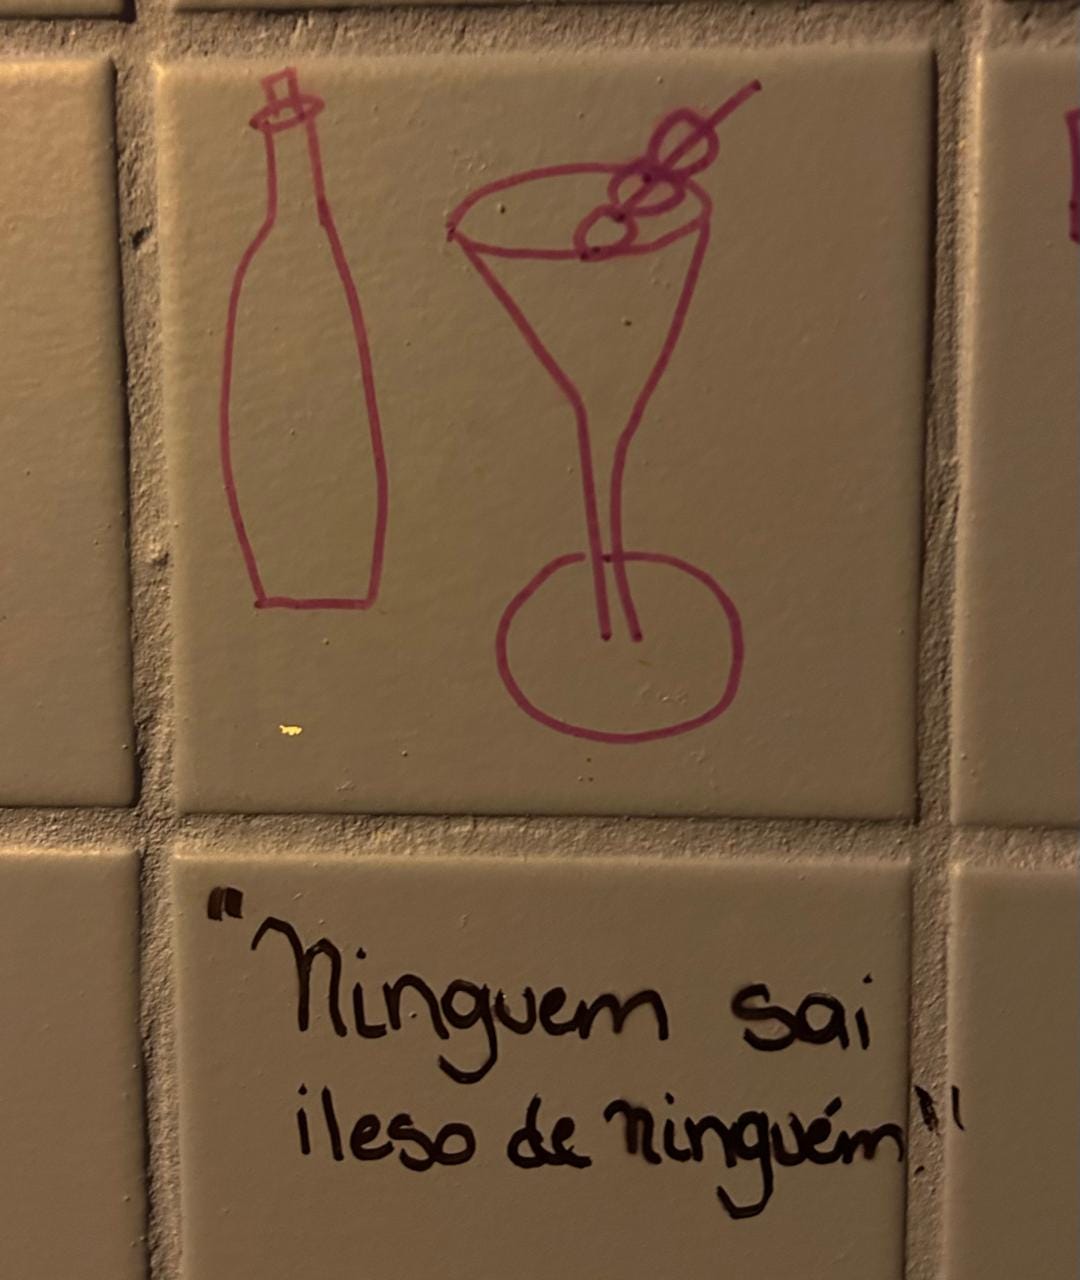 "Ninguem sai
ileso de ninguém"